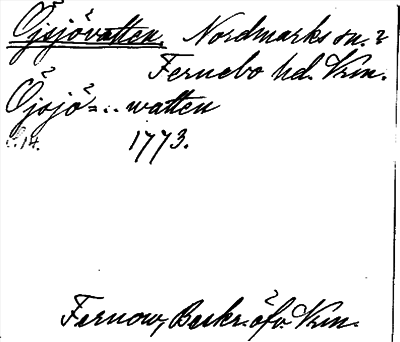 Öjsjövatten, Nordmarks sn.?
Fernebo hd. Vrm.
Öjsjö=..watten
1773.
Fernow, Beskr. öfv. Vrm.